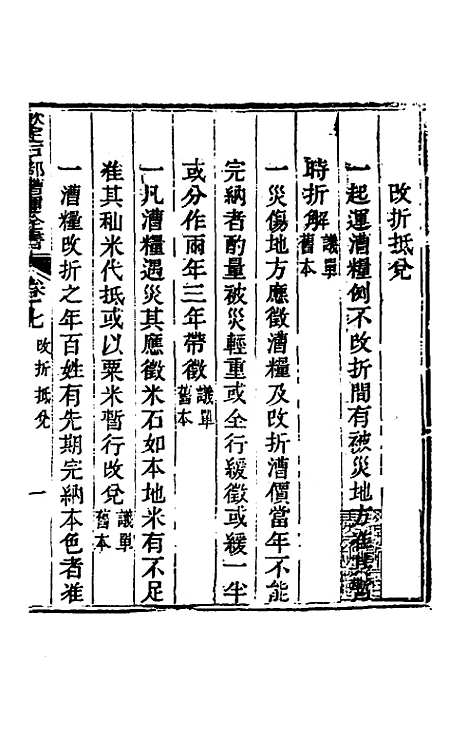 改折抵兌
一起運漕糧例不改折間有被災地方准其暫
時折解議單舊本
一災傷地方應徵漕糧及改折漕價當年不能
完納者酌量被災輕重或全行緩徵或緩一半
或分作兩年三年帶徵議單舊本
一凡漕糧遇災其應徵米石如本地米有不足
准其秈米代抵或以粟米暫行改兌議單舊本
一漕糧改折之年百姓有先期完納本色者准
欽定戶部漕運全書 卷七 改折抵兌 一